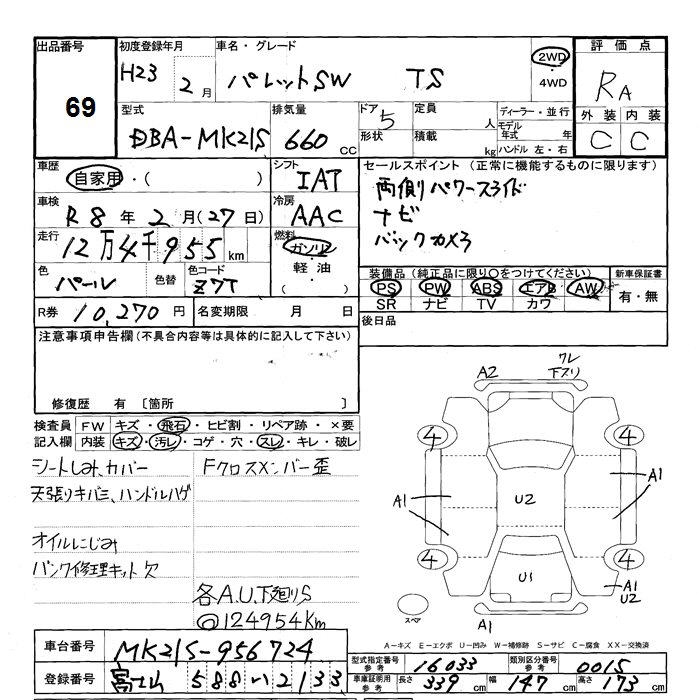 出品番号
69
初度登録年月
H23 2月
車名・グレード
パレットSW TS
2WD
・
4WD
評価点
RA
外装 内装
C C
型式
DBA-MK21S
排気量
660 cc
ドア 5
形状
定員 人
積載 kg
ディーラー・並行
モデル年式 年
ハンドル 左・右
車歴
自家用・( )
シフト
IAT
セールスポイント (正常に機能するものに限ります)
両側パワースライド
ナビ
バックカメラ
車検
R8年2月(27日)
冷房
AAC
走行
12万4千955km
燃料
ガソリン
・
軽油
・
( )
色
パール
色替
色コード
Z7T
装備品 (純正品に限り〇をつけてください)
PS PW ABS エアB AW
SR ナビ TV カワ
新車保証書
有・無
R券 10,270円
名変期限 月 日
後日品
注意事項申告欄(不具合内容等は具体的に記入して下さい)
修復歴 有 〔箇所 〕
検査員 FW キズ・飛石・ヒビ割・リペア跡・×要
記入欄 内装 キズ・汚レ・コゲ・穴・スレ・キレ・破レ
シートしみ、カバー
天張りキバミ、ハンドルハゲ
オイルにじみ
パンク修理キット欠
Fクロスメンバー歪
各A.U.下廻りS
@124954Km
A2
ワレ
下スリ
4
4
A1
A1
U2
4
4
U1
A1
U2
スペア
A1
A-キズ E-エクボ U-凹み W-補修跡 S-サビ C-腐食 XX-交換済
車台番号 MK21S-956724
登録番号 富士山 588 い 2133
型式指定番号 参考 16033
類別区分番号 参考 0015
車庫証明用 参考 長さ 339cm 幅 147cm 高さ 173cm